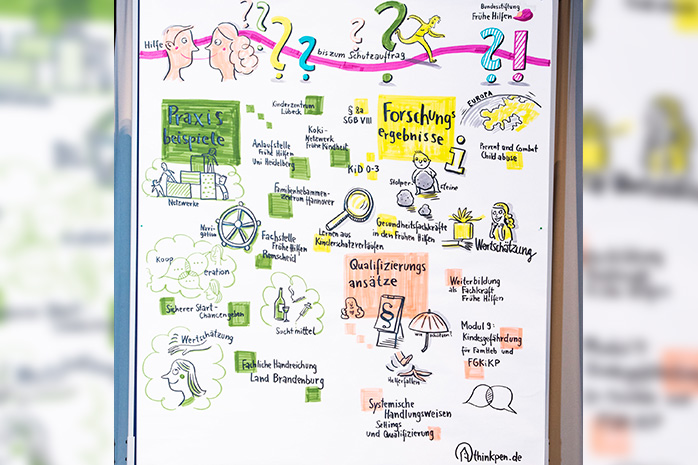 Bundesstiftung
Frühe Hilfen
Hilfe
bis zum Schutzauftrag
Praxis
beispiele
Kinderzentrum
Lübeck
§ 8a
SGB VIII
Forschungs
ergebnisse
EUROPA
Prevent and Combat
Child abuse
Anlaufstelle
Frühe Hilfen
Uni Heidelberg
Koki-
Netzwerk
frühe Kindheit
KiD 0-3
Stolper-
steine
Netzwerke
Familienhebammen-
Zentrum Hannover
Navi-
gation
Fachstelle
Frühe Hilfen
Remscheid
Lernen aus
Kinderschutzverläufen
Gesundheitsfachkräfte
in den Frühen Hilfen
Wertschätzung
Koop
eration
Qualifizierungs
ansätze
Weiterbildung
als Fachkraft
Frühe Hilfen
Sicherer Start-
Chancengeben
Suchtmittel
§
Modul 9:
Kindesgefährdung
für FamHeb und
FGKiKP
Wertschätzung
Fachliche Handreichung
Land Brandenburg
Helferfallen
Systemische
Handlungsweisen
Settings
und Qualifizierung
thinkpen.de